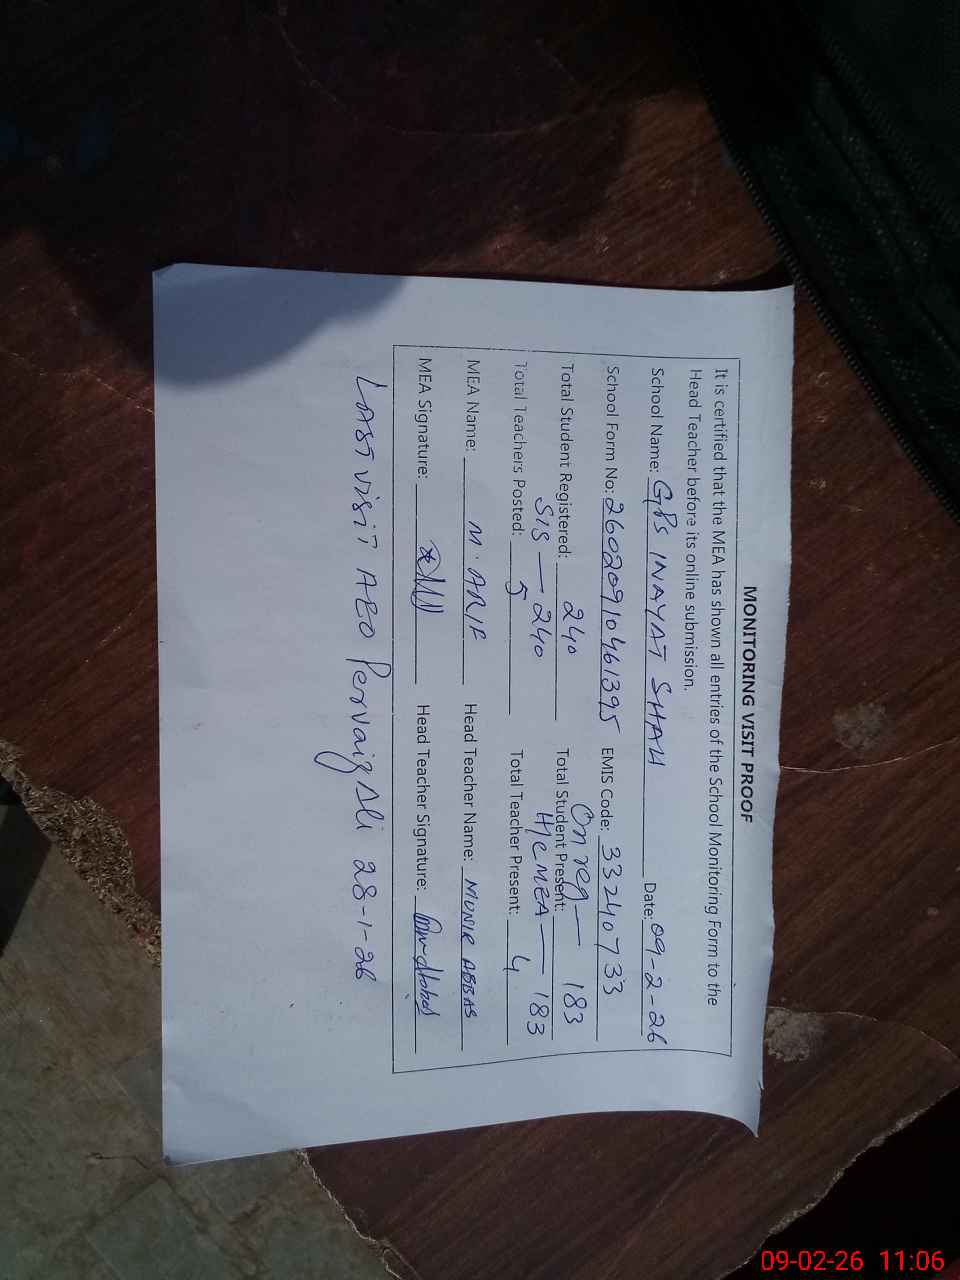 MONITORING VISIT PROOF
It is certified that the MEA has shown all entries of the School Monitoring Form to the
Head Teacher before its online submission.
School Name: GPS INAYAT SHAH Date: 09-2-26
School Form No: 26020910461395 EMIS Code: 33240733
Total Student Registered: 240 Total Student Present: On reg — 183
SIS — 240 H/C MEA — 183
Total Teachers Posted: 5 Total Teacher Present: 4
MEA Name: M. ARIF Head Teacher Name: MUNIR ABBAS
MEA Signature: Head Teacher Signature:
LAST VISIT AEO Pervaiz Ali 28-1-26
09-02-26 11:06